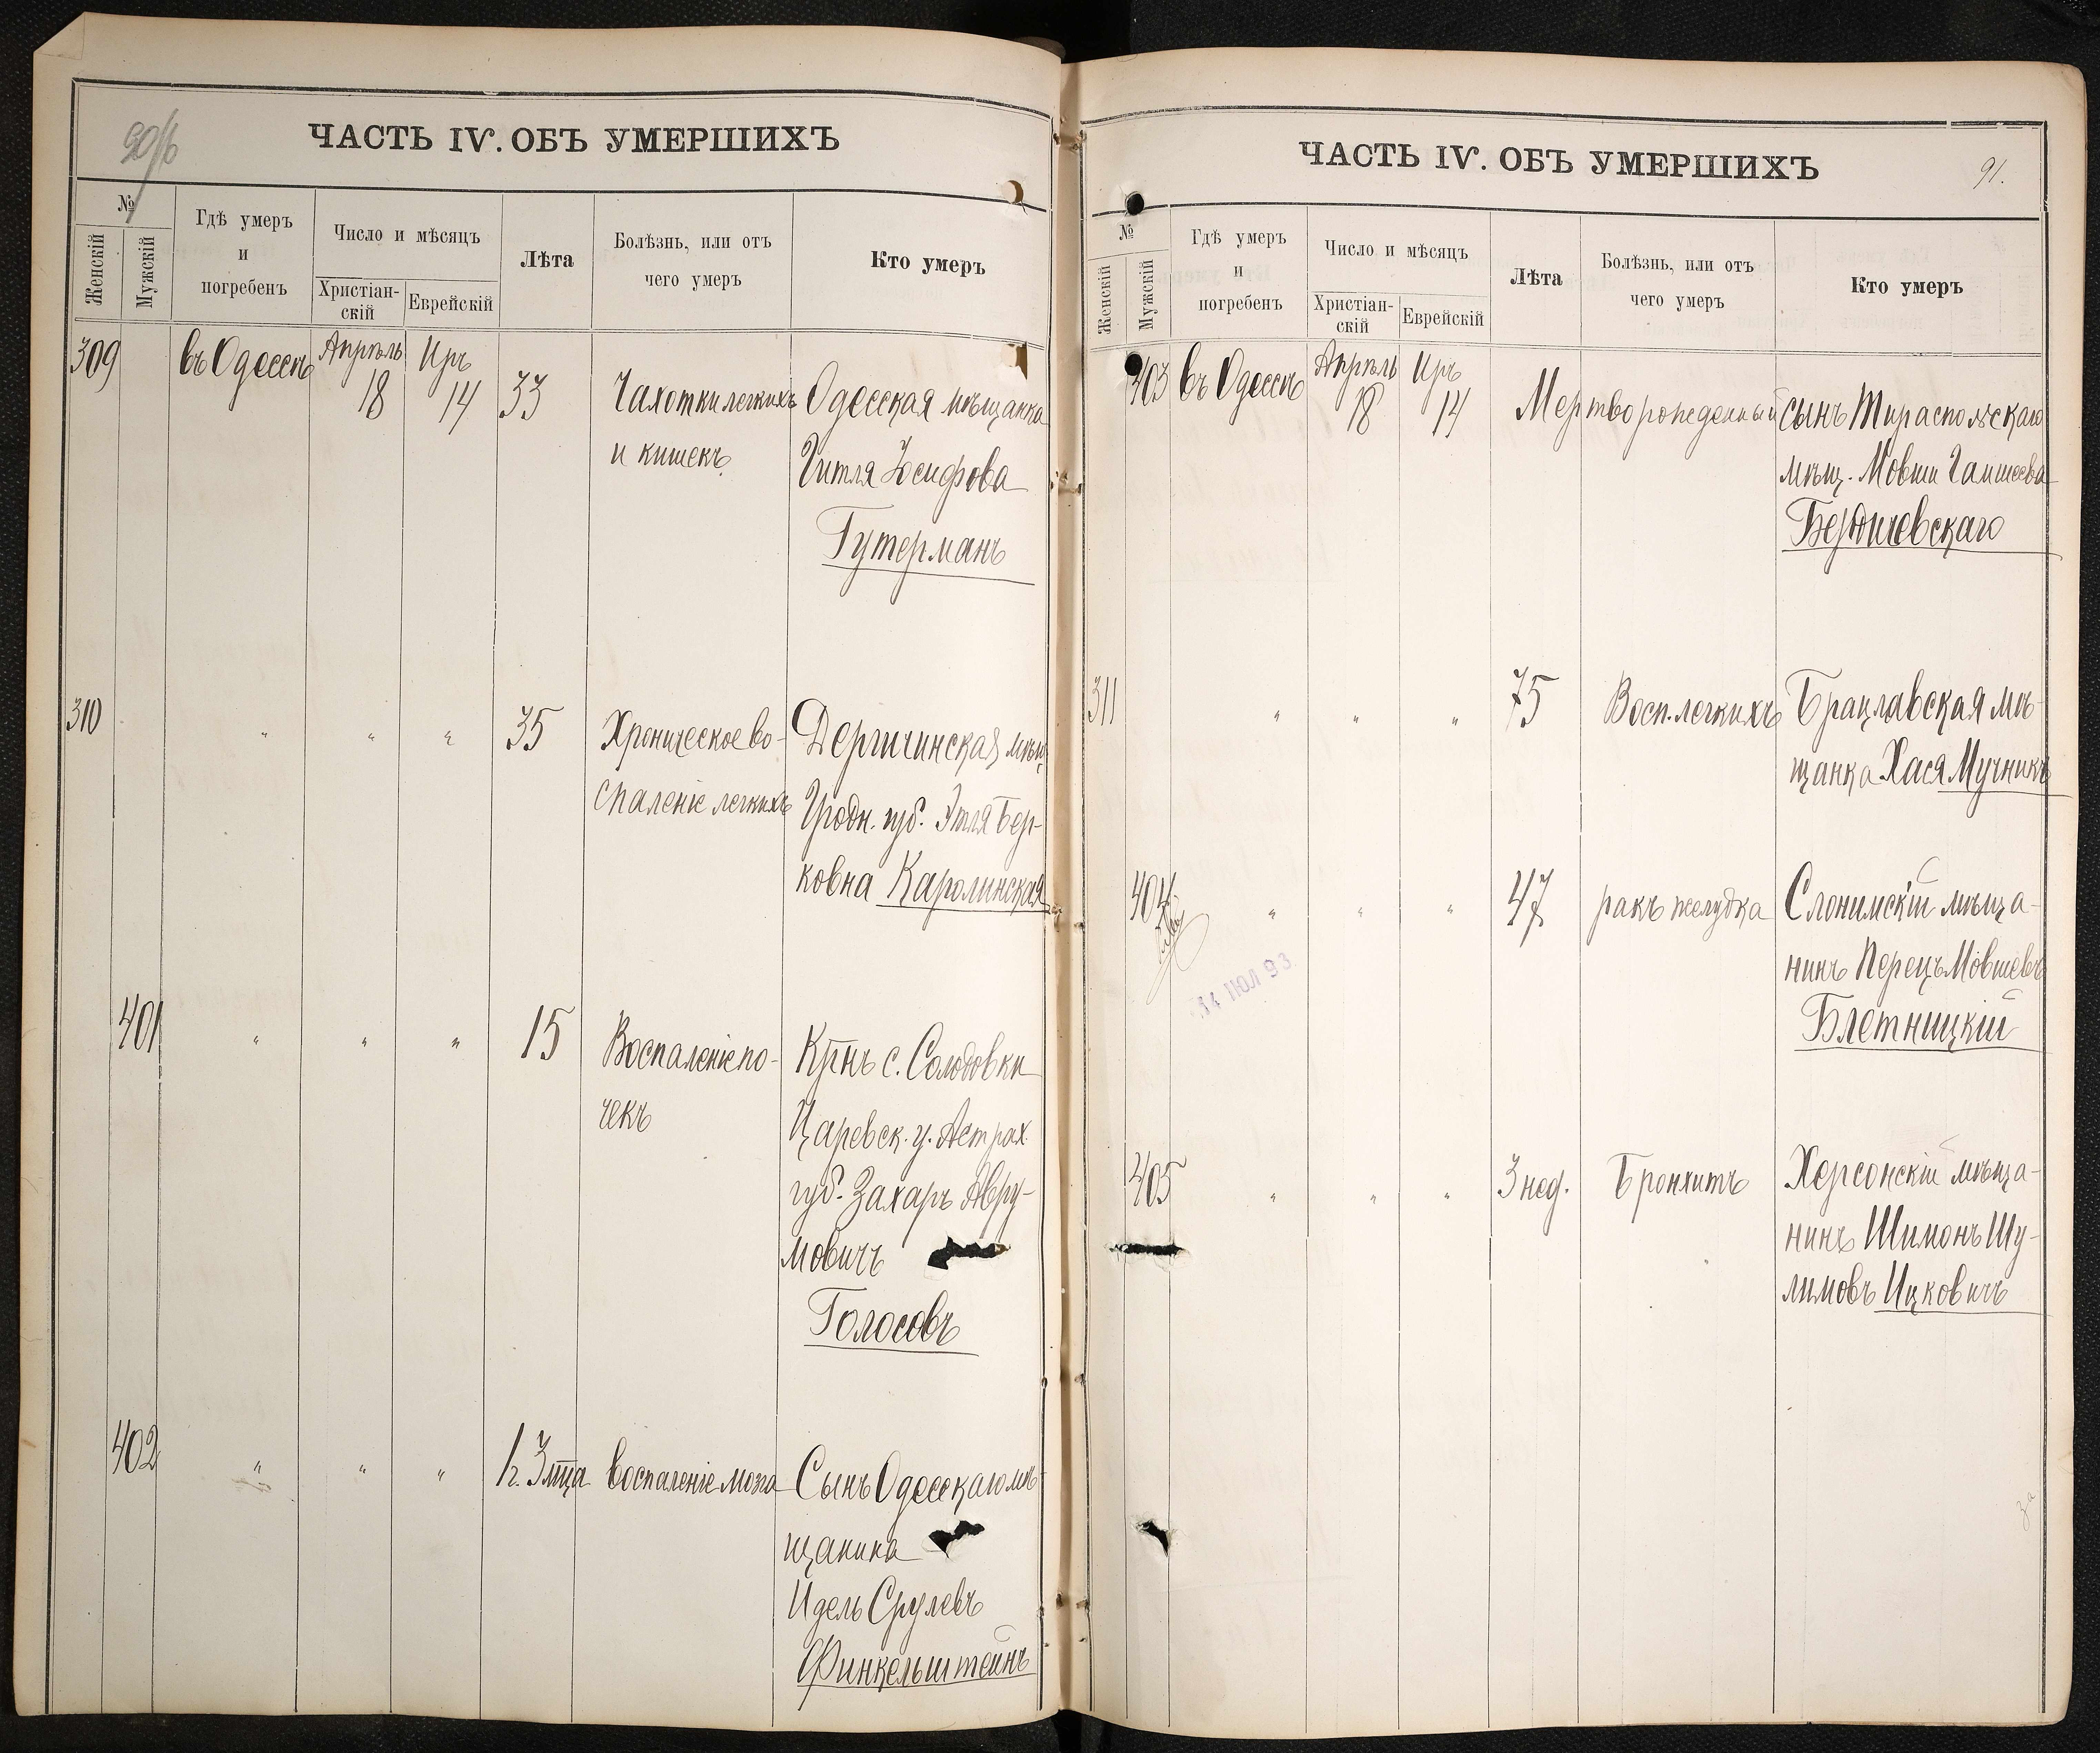 90/б
ЧАСТЬ IV. ОБЪ УМЕРШИХЪ
№
Женскій
Мужскій
Гдѣ умеръ
и
погребенъ
Число и мѣсяцъ
Христіан-
скій
Еврейскій
Лѣта
Болѣзнь, или отъ
чего умеръ
Кто умеръ
309 въ Одессѣ Апрѣль Иръ
18 14 33 Чахотки легкихъ Одесская мѣщанка
и кишекъ Гитля Іосифова
Гутерманъ
310 " " " 35 Хроническое во- Дергичинская мѣщ.
спаленіе легкихъ Гродн. губ. Этля Бер-
ковна Каролинская
401 " " " 15 Воспаленіе по- Кр̄нъ с. Солодовки
чекъ Царевск. у. Астрах.
губ. Захаръ Авру-
мовичъ
Голосовъ
402 " " " 1 г. 3 мца воспаленіе мозга Сынъ Одесскаго мѣ-
щанина
Идель Срулевъ
Финкельштейнъ
ЧАСТЬ IV. ОБЪ УМЕРШИХЪ
91.
№
Женскій
Мужскій
Гдѣ умеръ
и
погребенъ
Число и мѣсяцъ
Христіан-
скій
Еврейскій
Лѣта
Болѣзнь, или отъ
чего умеръ
Кто умеръ
403 въ Одессѣ Апрѣль Иръ
18 14 Мертворожденный сынъ Тираспольскаго
мѣщ. Мовши
Бердичевскаго
311 " " " 75 Восп. легкихъ Брацлавская мѣ-
щанка Хася Мучникъ
404 " " " 47 ракъ желудка Слонимскій мѣща-
нинъ Перецъ Мовшевъ
14 ІЮЛ 93
Блетницкій
405 " " " 3 нед. Бронхитъ Херсонскій мѣща-
нинъ Шимонъ Шу-
лимовъ Ицковичъ